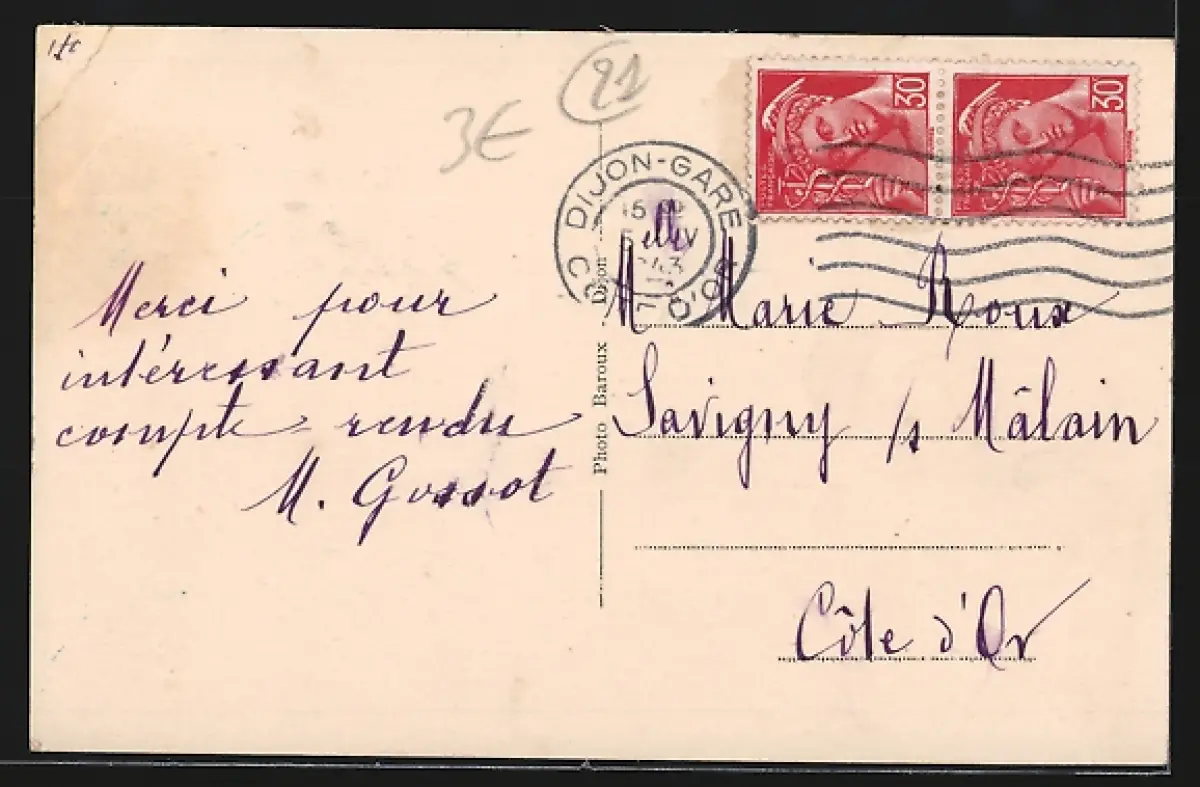 3€
21
30
30
DIJON-GARE
CÔTE D'OR
15 H
Merci pour
intéressant
compte-rendu
M. Gossot
Photo Baroux Dijon
Marie Roux
Savigny /s Mâlain
Côte d'Or